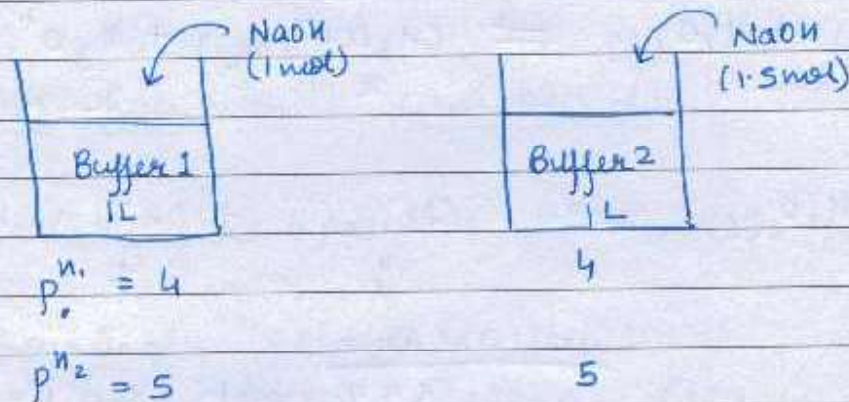 NaOH
(1 mol)
NaOH
(1.5 mol)
Buffer 1
1L
Buffer 2
1L
pH₁ = 4
4
pH₂ = 5
5